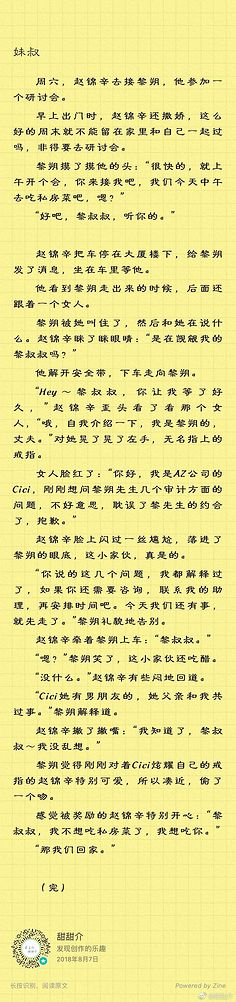 妹叔
周六，赵锦辛去接黎朔，他参加一
个研讨会。
早上出门时，赵锦辛还撒娇，这么
好的周末就不能留在家里和自己一起过
吗，非得要去研讨会。
黎朔摸了摸他的头：“很快的，就上
午开个会，你来接我吧，我们今天中午
去吃私房菜吧，嗯？”
“好吧，黎叔叔，听你的。”
赵锦辛把车停在大厦楼下，给黎朔
发了消息，坐在车里等他。
他看到黎朔走出来的时候，后面还
跟着一个女人。
黎朔被她叫住了，然后和她在说什
么。赵锦辛眯了眯眼睛：“是在觊觎我的
黎叔叔吗？”
他解开安全带，下车走向黎朔。
“Hey～黎叔叔，你让我等了好
久，”赵锦辛歪头看了看那个女
人，“哦，自我介绍一下，我是黎朔的，
丈夫。”对她晃了晃左手，无名指上的
戒指。
女人脸红了：“你好，我是AZ公司的
Cici，刚刚想问黎朔先生几个审计方面的
问题，不好意思，耽误了黎先生的约会
了，抱歉。”
赵锦辛脸上闪过一丝尴尬，落进了
黎朔的眼底，这小家伙，真是的。
“你说的这几个问题，我都解释过
了，如果你还需要咨询，联系我的助
理，再安排时间吧。今天我们还有事，
就先走了。”黎朔礼貌地告别。
赵锦辛牵着黎朔上车：“黎叔叔。”
“嗯？”黎朔笑了，这小家伙还吃醋。
“没什么。”赵锦辛有些闷地回道。
“Cici她有男朋友的，她父亲和我共
过事。”黎朔解释道。
赵锦辛撇了撇嘴：“我知道了，黎叔
叔～我没乱想。”
黎朔觉得刚刚对着Cici炫耀自己的戒
指的赵锦辛特别可爱，所以凑近，偷了
一个吻。
感觉被奖励的赵锦辛特别开心：“黎
叔叔，我不想吃私房菜了，我想吃你。”
“那我们回家。”
（完）
甜甜介
发现创作的乐趣
2018年8月7日
长按识别，阅读原文
Powered by Zine